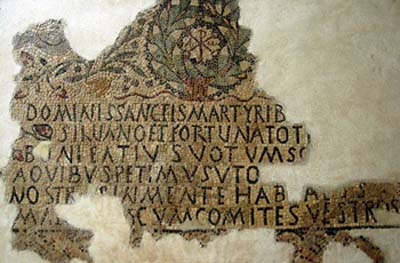 DOMINISSANCTISMARTYRIB
SILVANOETFORTVNATOT
BONIFATIVSVOTVMSO
AQVIBVSPETIMVSVTO
NOSTR INMENTEHAB
SCVMCOMITESVESTROS